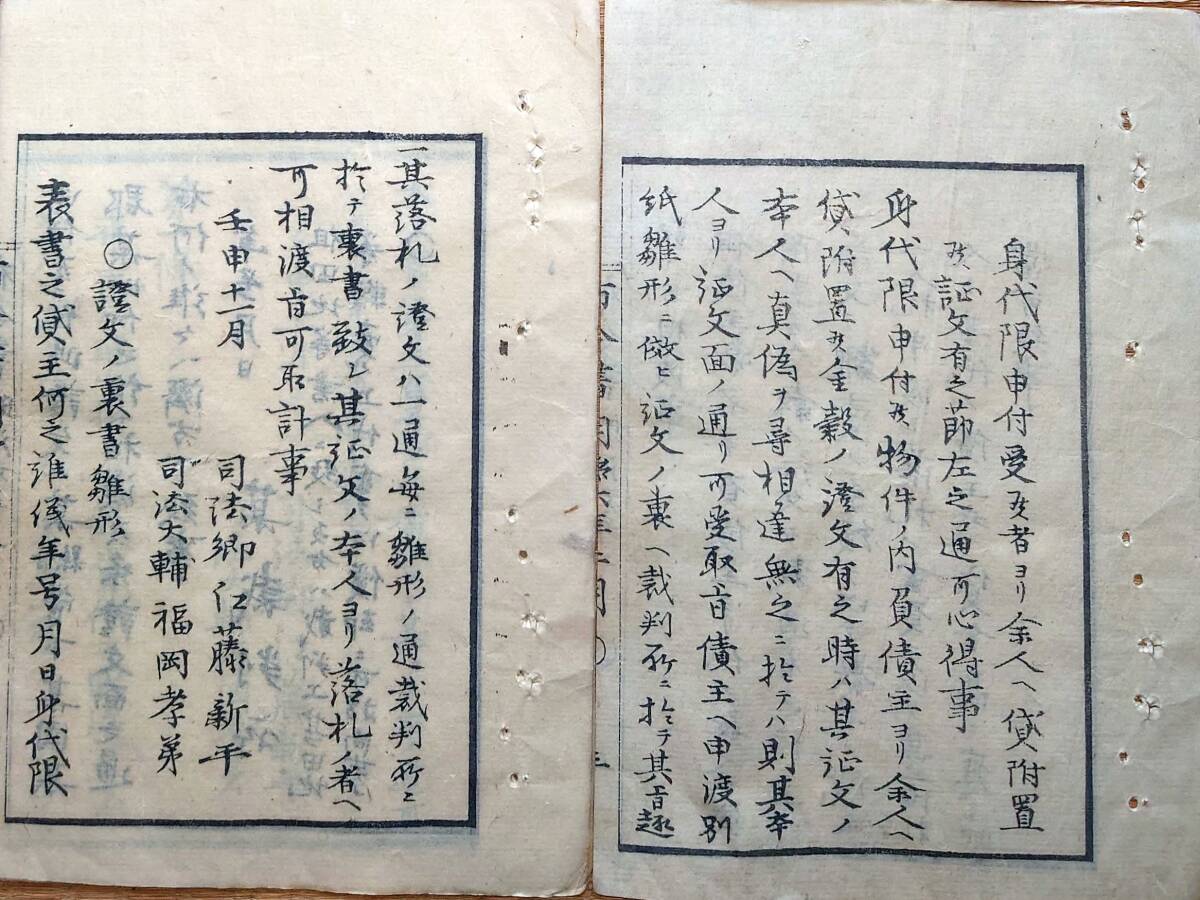 身代限申付受候者ヨリ余人ヘ貸附置
候証文有之節左之通可心得事
身代限申付候物件ノ内負債主ヨリ余人ヘ
貸附置候金穀ノ證文有之時ハ其証文ノ
本人ヘ真偽ヲ尋相違無之ニ於テハ則其本
人ヨリ証文面ノ通リ可受取旨債主ヘ申渡別
紙雛形ニ倣ヒ証文ノ裏ヘ裁判所ニ於テ其旨趣
一其落札ノ證文ハ一通毎ニ雛形ノ通裁判所ニ
於テ裏書致シ其証文ノ本人ヨリ落札ノ者ヘ
可相渡旨可取計事
壬申十一月
司法卿仁藤新平
司法大輔福岡孝弟
○證文ノ裏書雛形
表書之貸主何之誰儀年号月日身代限